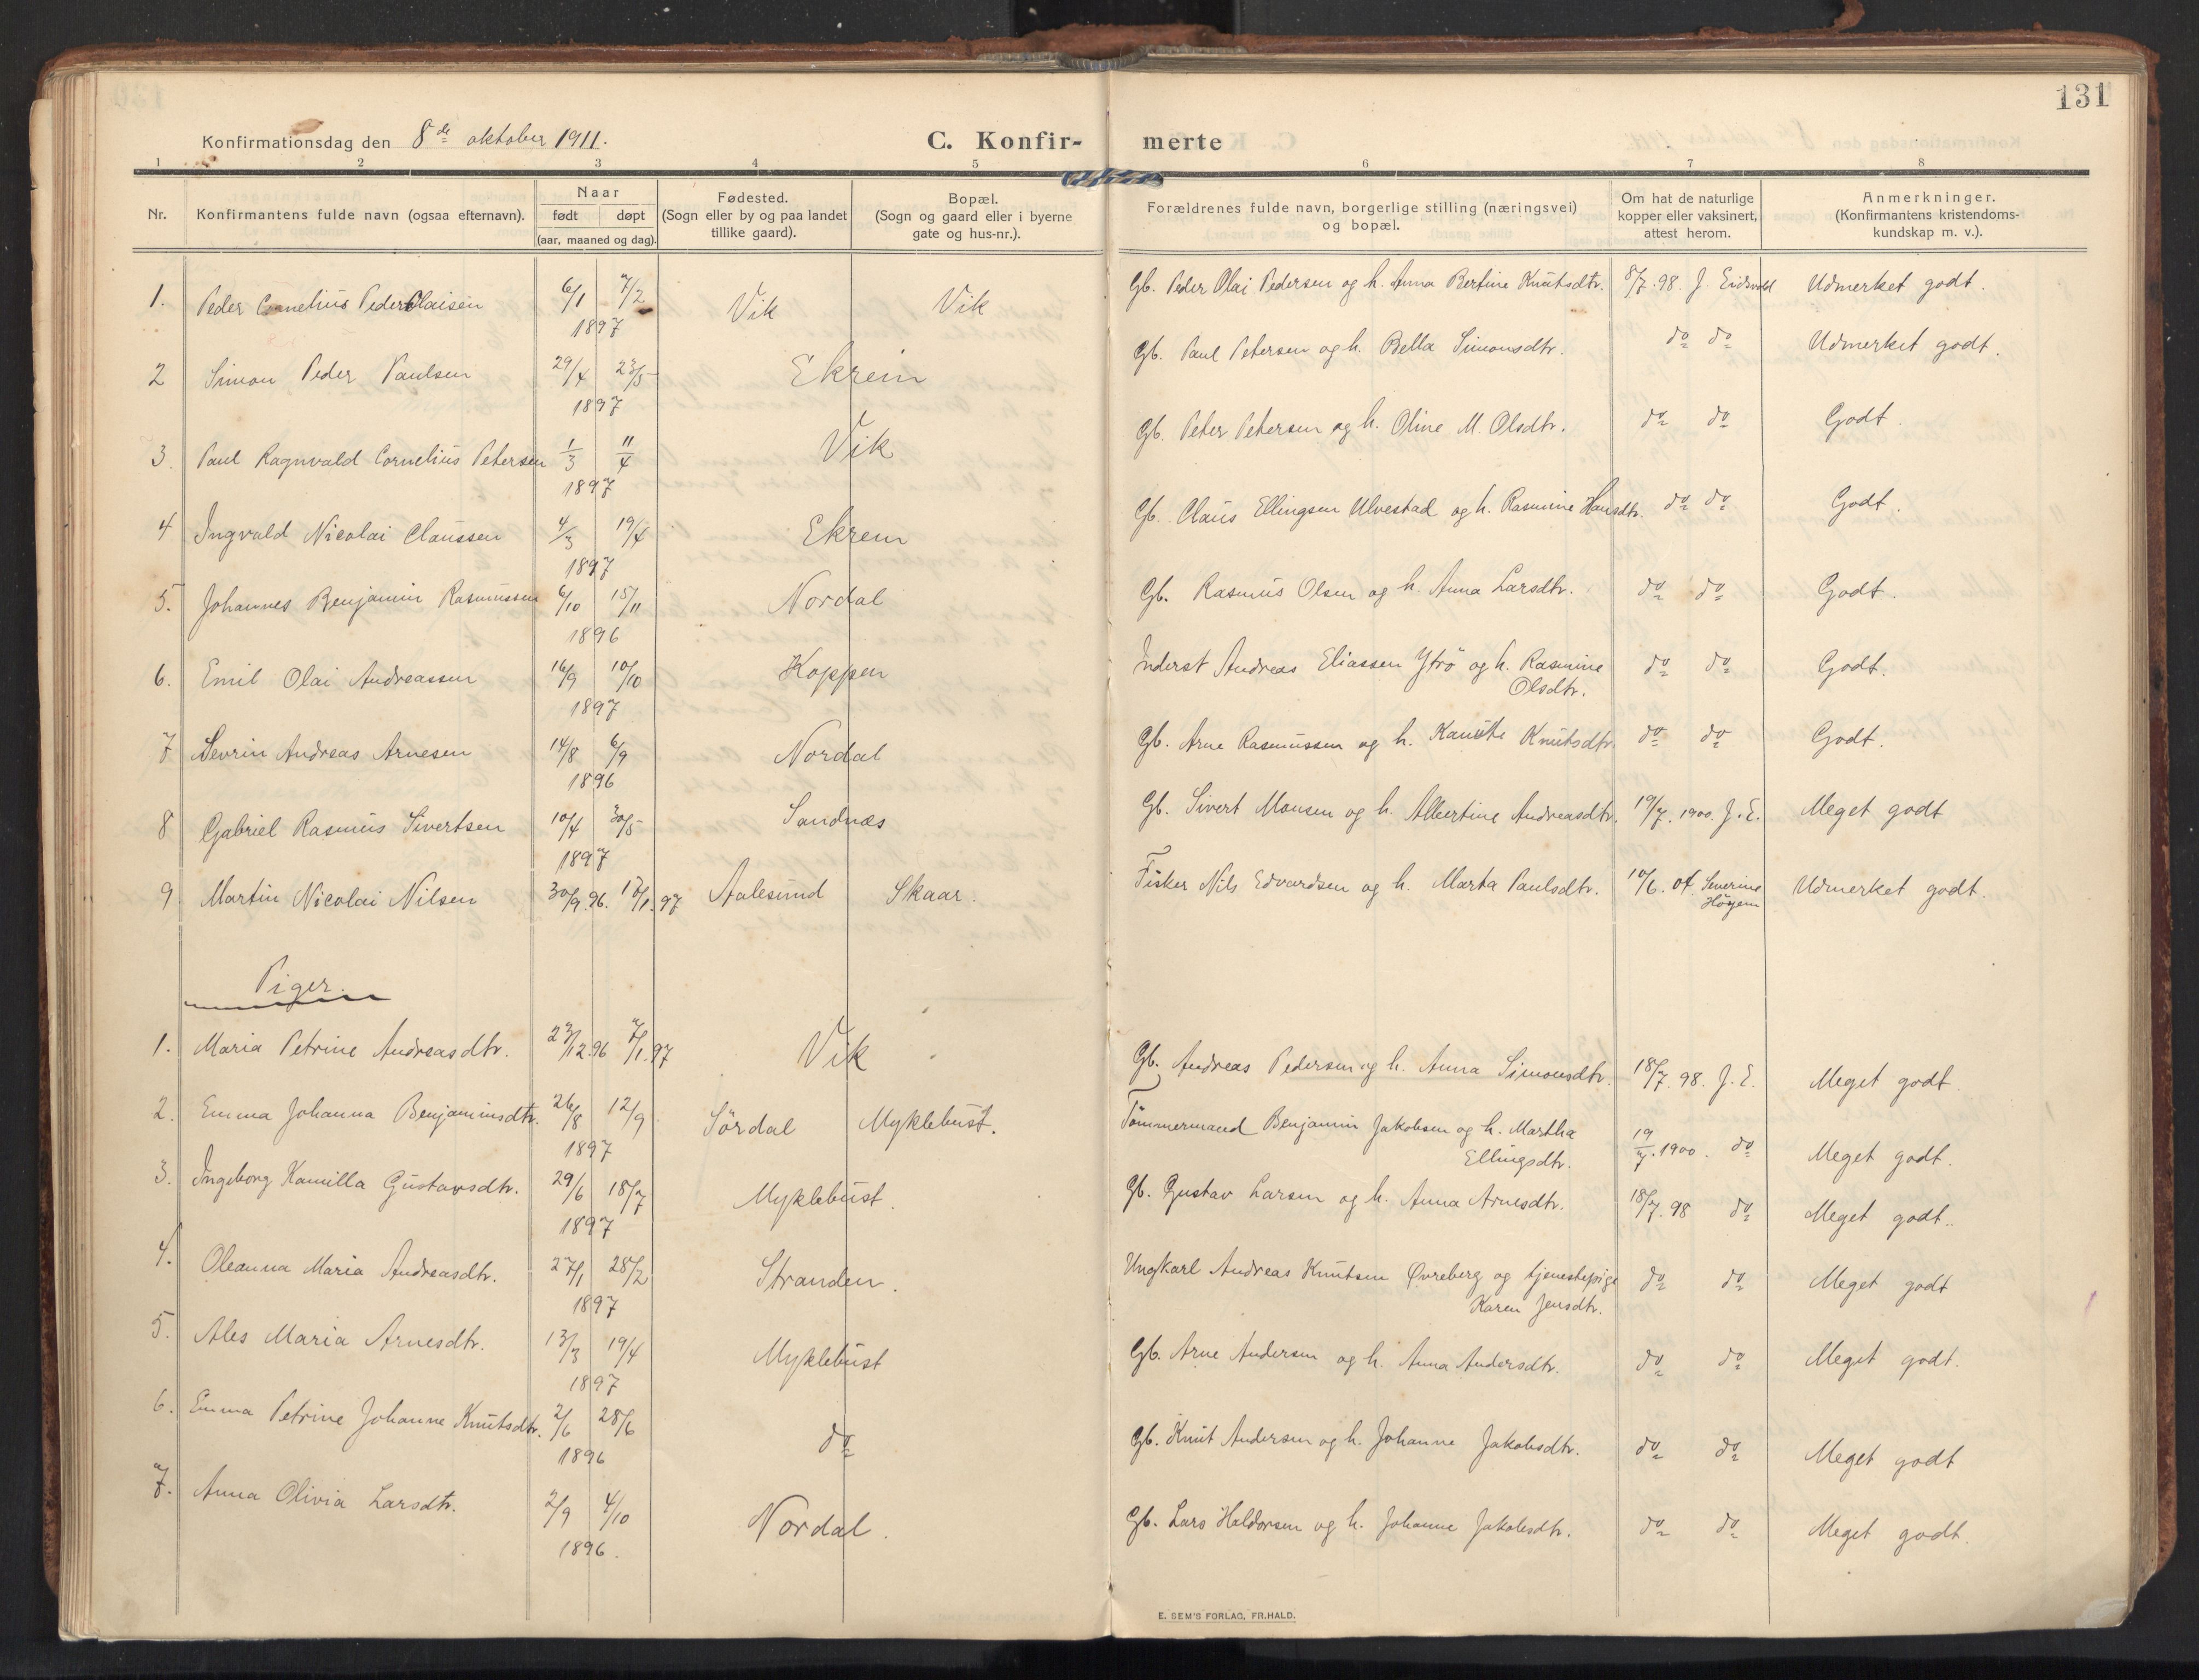 131
Konfirmationsdag den 8de oktober 1911. C. Konfir- merte
1 2 3 4 5 6 7 8
Nr. Konfirmantens fulde navn (ogsaa efternavn). Naar født døpt (aar, maaned og dag). Fødested. (Sogn eller by og paa landet tillike gaard). Bopæl. (Sogn og gaard eller i byerne gate og hus-nr.). Forældrenes fulde navn, borgerlige stilling (næringsvei) og bopæl. Om hat de naturlige kopper eller vaksinert, attest herom. Anmerkninger. (Konfirmantens kristendoms- kundskap m. v.).
1. Peder Cornelius Pederolaisen 6/1 7/2 1897 Vik Vik Gb. Peder Olai Pedersen og h. Anna Bertine Knutsdtr. 8/7. 98. J. Eidsvold Udmerket godt.
2 Simon Peder Paulsen 29/4 23/5 1897 Ekrem Gb. Paul Petersen og h. Bella Simonsdtr. do do Udmerket godt.
3. Paul Ragnvald Cornelius Petersen 1/3 11/4 1897 Vik Gb. Peter Petersen og h. Oline M. Olsdtr. do do Godt.
4 Ingvald Nicolai Claussen 4/3 19/4 1897 Ekrem Gb. Claus Ellingsen Ulvestad og h. Rasmine Hansdtr. do do Godt.
5. Johannes Benjamin Rasmussen 6/10 15/11 1896 Nordal Gb. Rasmus Olsen og h. Anna Larsdtr. do do Godt.
6. Emil Olai Andreassen 16/9 10/10 1897 Koppen Inderst Andreas Eliassen Ytrö og h. Rasmine Olsdtr. do do Godt.
7 Sevrin Andreas Arnesen 14/8 6/9 1896 Nordal Gb. Arne Rasmussen og h. Knutsdtr do do Godt.
8 Gabriel Rasmus Sivertsen 10/4 30/5 1897 Sandnæs Gb. Sivert Monsen og h. Albertine Andreasdtr. 19/7. 1900. J. E. Meget godt
9 Martin Nicolai Nilsen 30/9. 96. 17/1. 97 Aalesund Skaar. Fisker Nils Edvardsen og h. Marta Paulsdtr. 10/6. 01. Severine Höyem Udmerket godt.
Piger.
1. Maria Petrine Andreasdtr. 23/12 96 7/1. 97 Vik Gb. Andreas Pedersen og h. Anna Simonsdtr. 18/7. 98. J. E. Meget godt.
2. Emma Johanna Benjaminsdtr. 26/8 12/9 1897 Sördal Myklebust. Tömmermand Benjamin Jakobsen og h. Martha Ellingsdtr. 19/7. 1900. do Meget godt.
3. Ingeborg Kamilla Gustavsdtr. 29/6 18/7 1897 Myklebust. Gb. Gustav Larsen og h. Anna Arnesdtr. 18/7. 98 do Meget godt.
4. Oleanna Maria Andreasdtr. 27/1 28/2 1897 Stranden. Ungkarl Andreas Knutsen Övreberg og tjenestepige Karen Jensdtr. do do Meget godt
5. Ales Maria Arnesdtr. 13/3 19/4 1897 Myklebust Gb. Arne Andersen og h. Anna Andersdtr. do do Meget godt.
6. Emma Petrine Johanne Knutsdtr. 2/6 28/6 1896 do Gb. Knut Andersen og h. Johanne Jakobsdtr. do do Meget godt
7. Anna Olivia Larsdtr. 2/9 4/10 1896. Nordal. Gb. Lars Haldorsen og h. Johanne Jakobsdtr. do do Meget godt.
E. SEM'S FORLAG, FR.HALD.